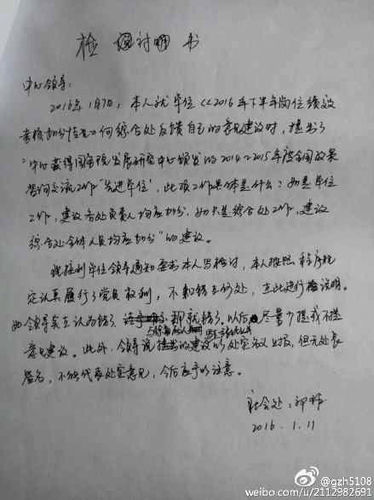 检讨书
中心领导:
2016年1月7日,本人就单位<<2016年下半年岗位绩效
考核加分情况>>向综合处反馈自己的意见建议时,提出了
"中心获得国务院发展研究中心颁发的2014-2015年度全国政策
咨询交流工作"先进单位",此项工作具体是什么?如是单位
工作,建议各处负责人均应加分,如只是综合处工作,建议
综合处全体人员均应加分"的建议。
我接到单位领导通知要求本人写检讨,本人按照程序规
定认真履行了党员权利,不知错于何处,在此进行检讨说明。
如领导实在认为错了 那就错了,以后尽量少提或不提
意见建议。此外,领导说提出的建议以处室名义上报,但无处长
签名,不能代表处室意见,今后应予以注意。
社会处:
2016.1.11
@gzh5108
weibo.com/u/2112982691